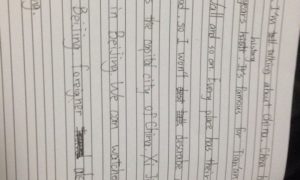 I'm talking about China. China h
history
years history. It's famous for Tian'an
Wall and so on. Every place has their
od. so I won't describe
s the capital city of China Xi J
in Beijing We can watch
Beijing foreigner
ng.